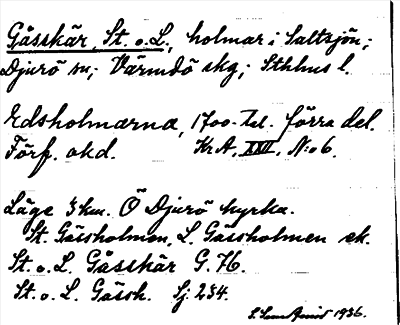 Gåsskär, St. o. L., holmar i Saltsjön;
Djurö sn; Värmdö skg; Sthlms l.
Edsholmarna, 1700-tal. förra del.
Förf. okd. Kr.A, XXII, N:o 6.
Läge 3 km. Ö Djurö kyrka.
St. Gåssholmen, L. Gåssholmen ek.
St. o. L. Gåsskär G. 76.
St. o. L. Gåssh. Sj. 234.
1936.